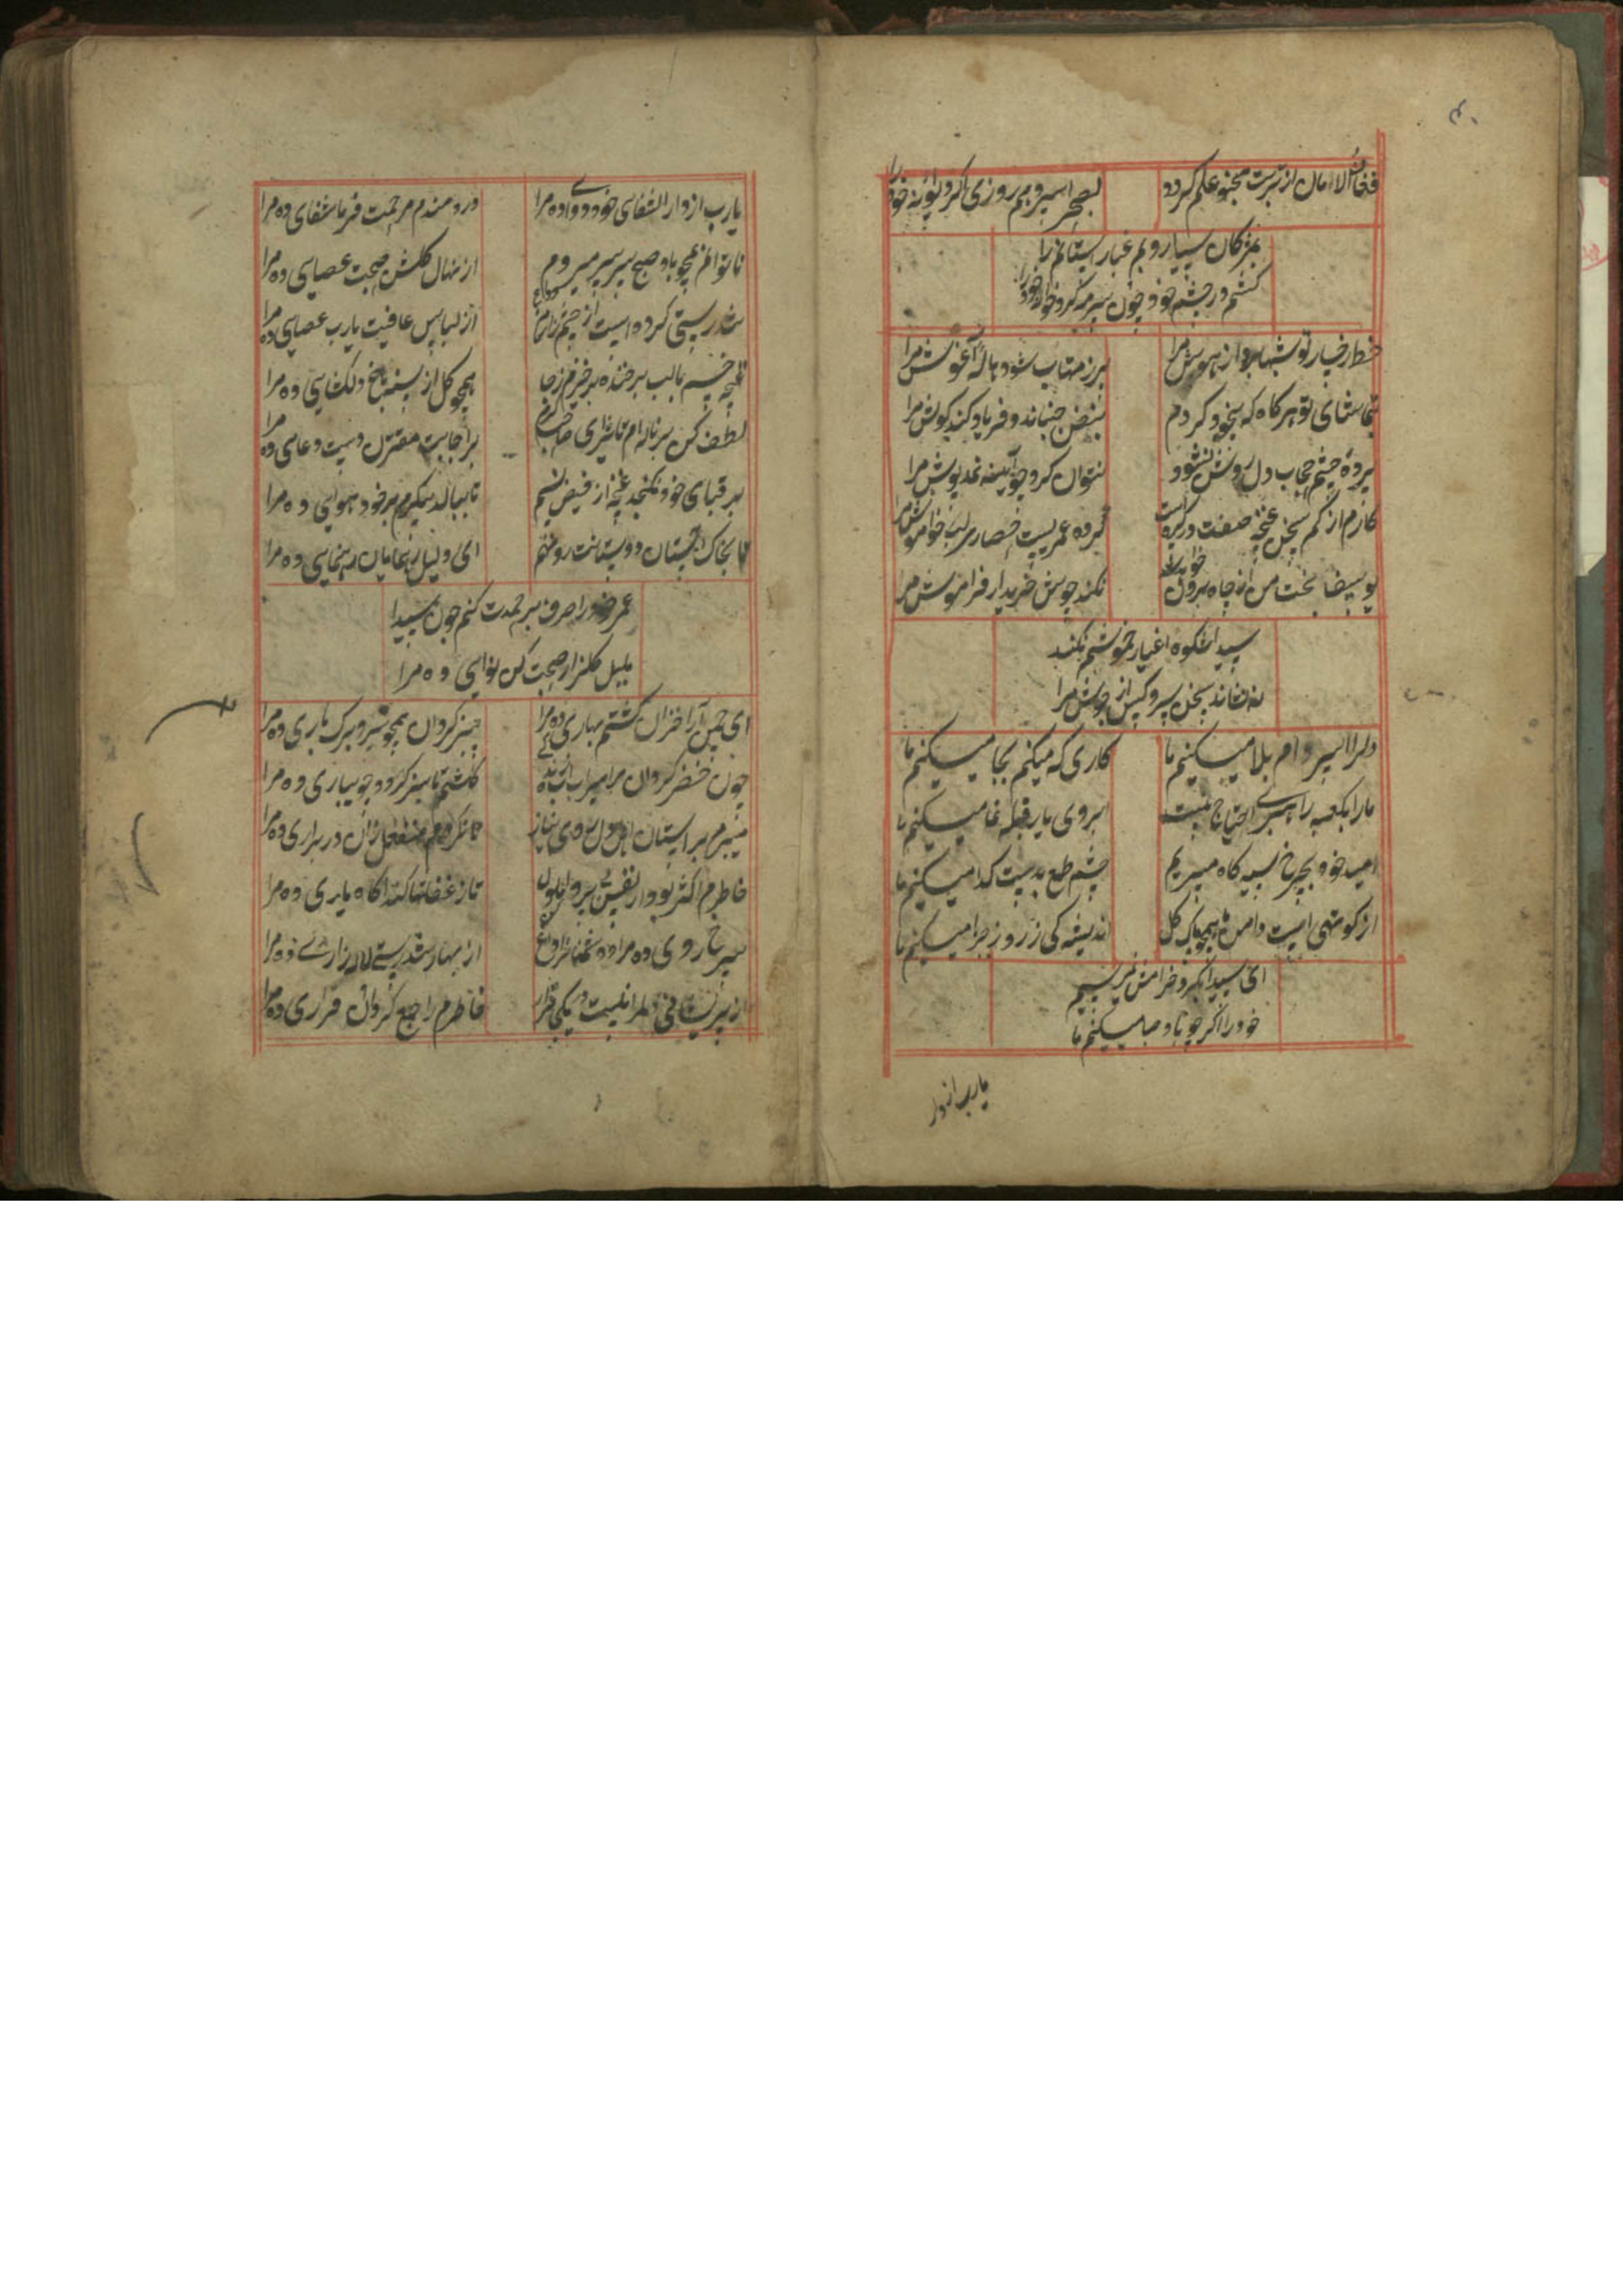 ۴۰
فغان الامان از تربت مجنون علم گردد
بصحرا سیر و بم روزی اگر دیوانه خود را
بمژگان سیدا رویم غبار آستانم را
کشم در چشم خود چون سرمه گرد خانه خود را
خط رخسار تو شبها برد از هوش مرا
پرز مهتاب شود هاله آغوش مرا
بتماشای تو هر گاه که بیخود گردم
نبض جنباند و فریاد کند گوش مرا
پرده چشم حجاب دل روشن نشود
نتوان کرد چو آیینه نمدپوش مرا
کارم از کم سخنی غنچه صفت در گره است
کرده عمریست حصاری لب خاموش مرا
یوسفا بخت من از چاه برون
نکند جوش خریدار فراموش مرا
سیدا شکوه اغیار خموشم نکند
ننشاند سخن سرو کس از جوش مرا
دل را اسیر دام بلا میکنیم ما
کاری که میکنیم بجا میکنیم ما
ما را بکعبه راهبری احتیاج نیست
ابروی یار قبله نما میکنیم ما
امید خود بچرخ سیه کاسه میبریم
چشم طمع بدست گدا میکنیم ما
از کوتهی است دامن ما همچو برگ گل
اندیشه کی ز روز جزا میکنیم ما
ای سیدا بگرد خرامش نمیرسیم
خود را اگر چو باد صبا میکنیم ما
یارب از دار
یارب از دار الشفای خود دوا ده مرا
دردمندم مرحمت فرما شفای ده مرا
ناتوانم همچو باد صبح سرسر میروم
از نهال گلشن صحت عصایی ده مرا
تندرستی کرده است از جسم زارم
از لباس عافیت یارب عصایی ده مرا
غنچه خسبم با لب پر خنده بر خیزم ز جا
همچو گل از سینه باغ دلگشایی ده مرا
لطف کن سر ناله‌ام تاثیری
بر اجابت مقترن دست دعایی ده مرا
بر قبای خود نگنجد غنچه از فیض نسیم
تا ببالد پیکرم بر خود هوایی ده مرا
تا بخاک آستان دوستانت رو نهم
ای دلیل رهنمایان رهنمایی ده مرا
عمر خود را صرف بر حمدت کنم چون سیدا
بلبل گلزار صحبت کن نوایی ده مرا
ای چمن آرا خزان گشتم بهاری ده مرا
سبز گردان همچو سرو برگ باری ده مرا
چون خضر گردان مرا سیراب
گلشنم تا سبز گردد جویباری ده مرا
میبرم بر آستان اهل دل روی نیاز
تا نگردم منفعل زان در براری ده مرا
خاطرم اکثر بود از نفس بد ملول
تا ز غفلتها کند آگاه یاری ده مرا
سرخ رویی ده مرا
از بهار تندرستی لاله زاری ده مرا
از پریشانی دلم را نیست در یکجا قرار
خاطرم را جمع گردان قراری ده مرا